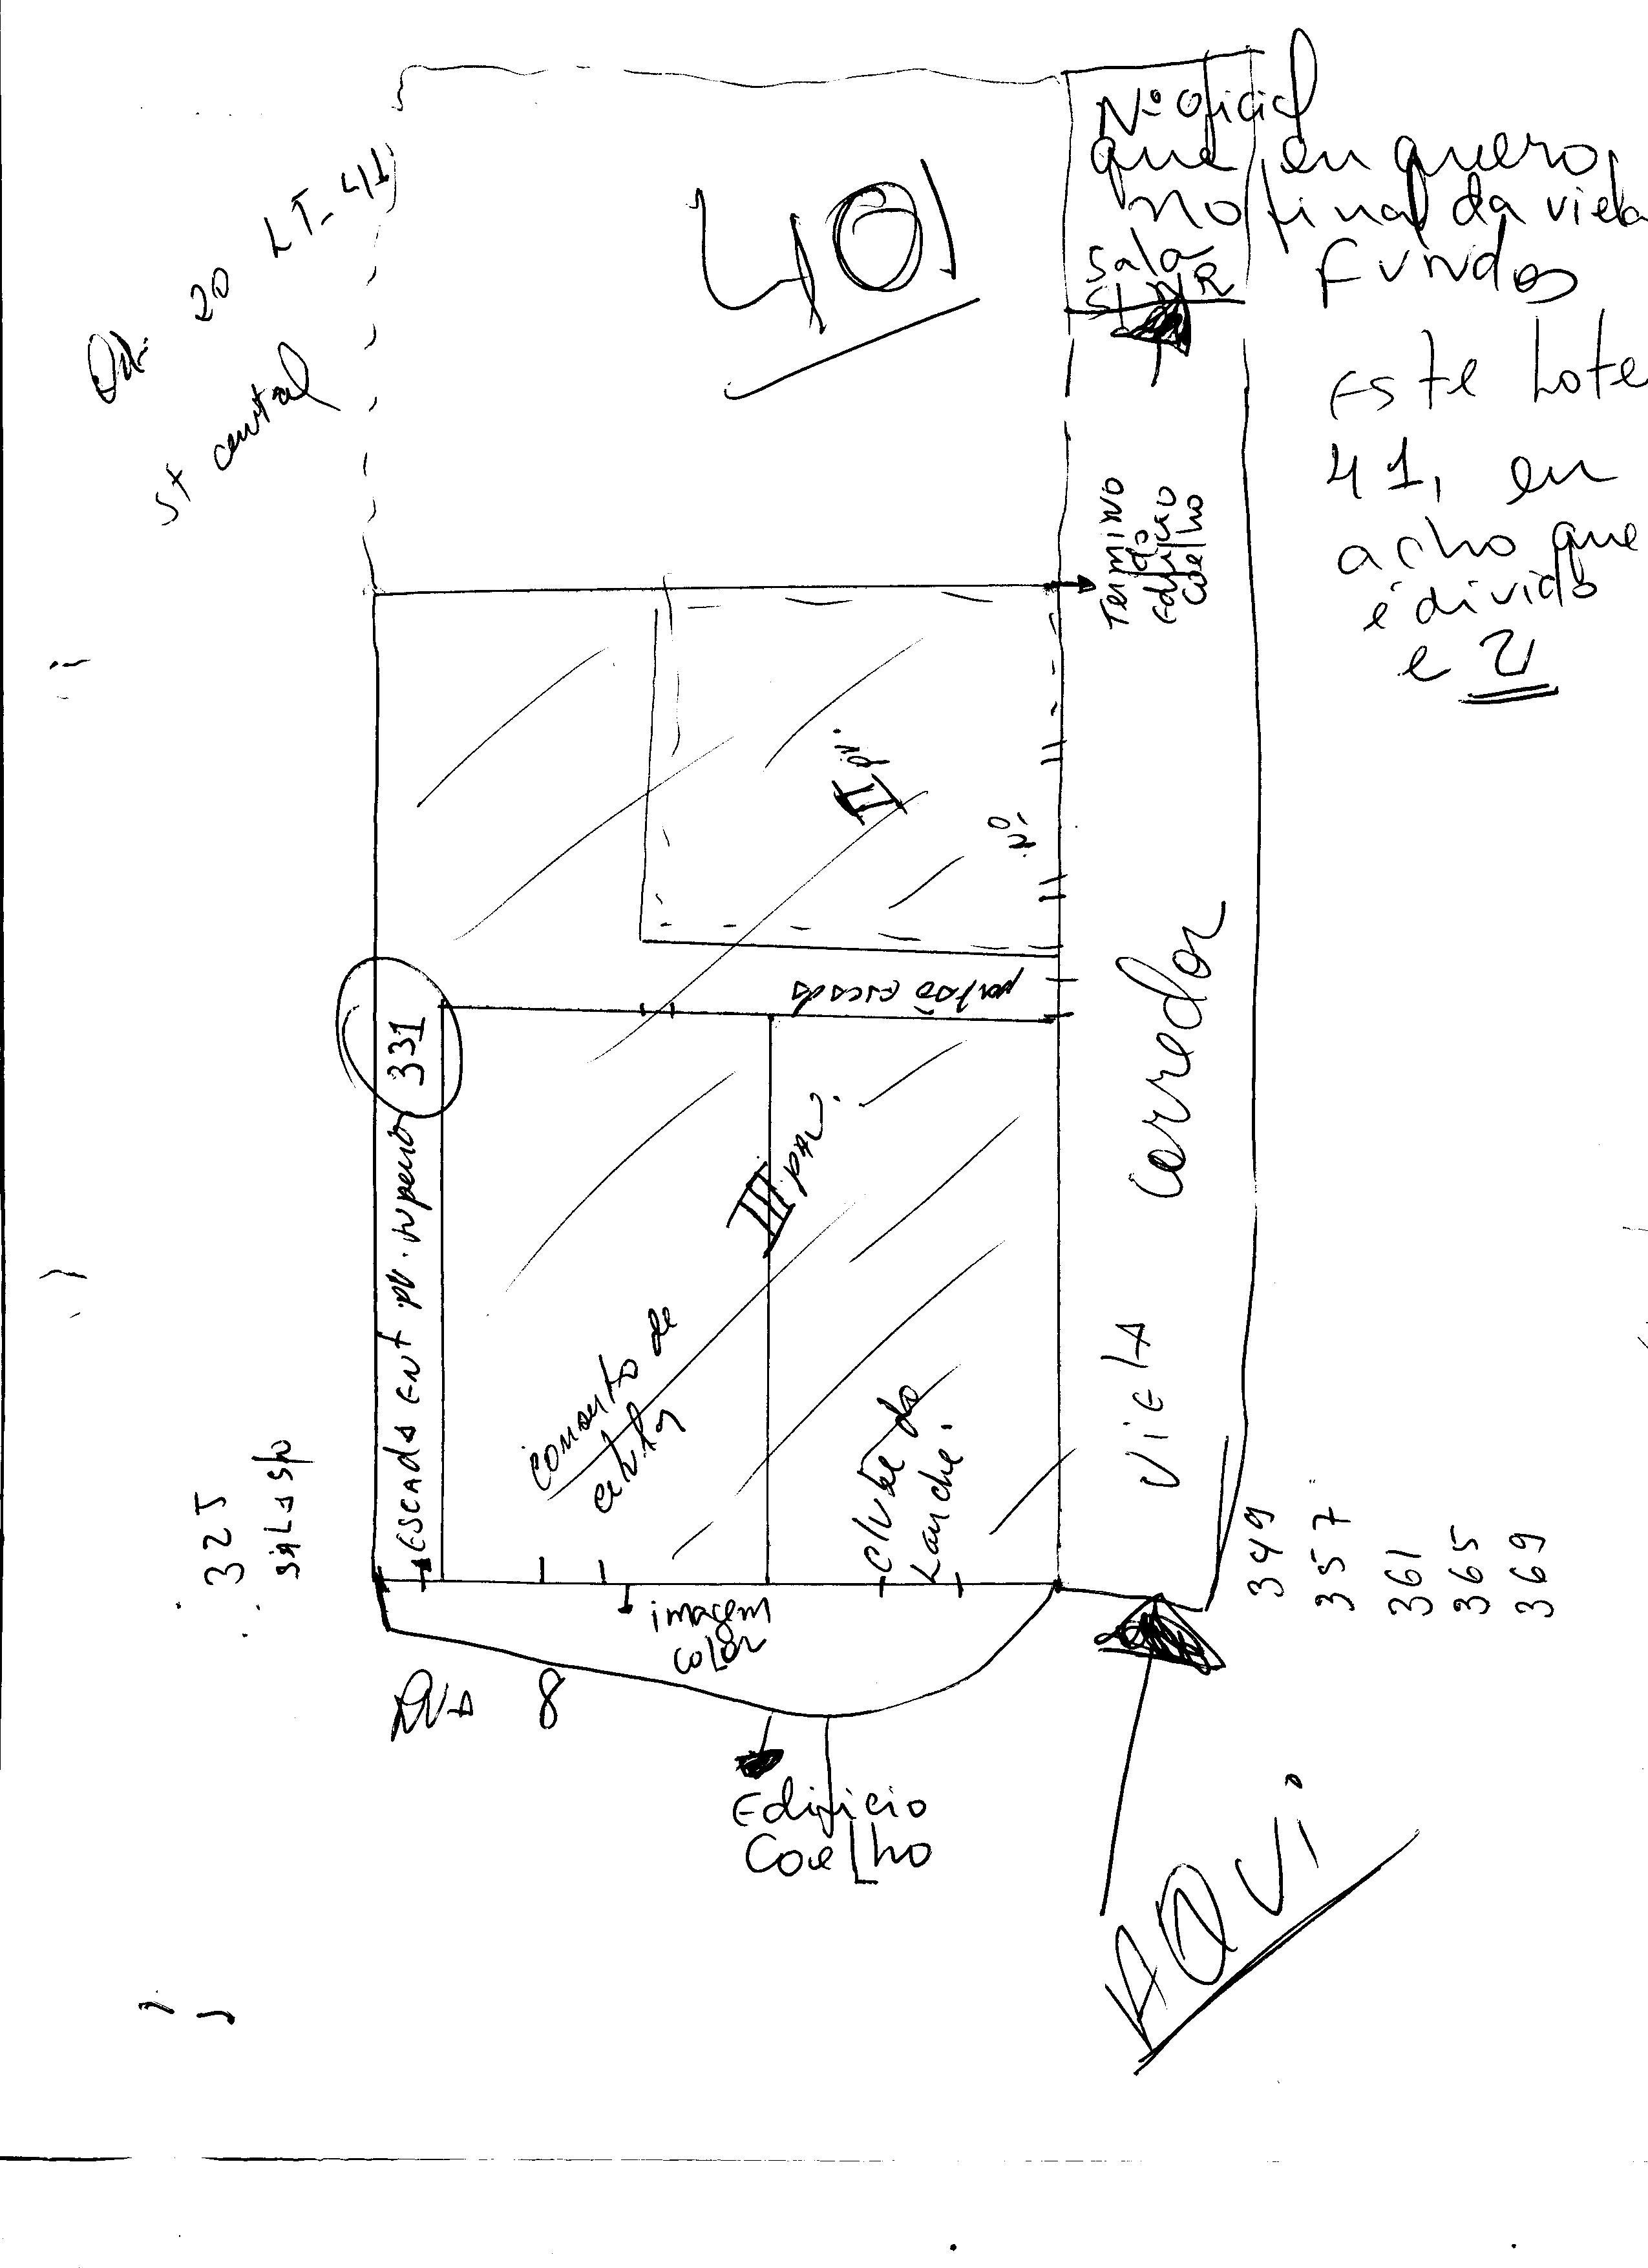 Nº oficial
que eu quero,
no final da viela
Fundos
Sala
Este Lote
41, eu
acho que
é divido
e 2
401
Qd. 20 LT-41
St central
Termino
do
Edificio
Coelho
II pv.
Nº
portão escada
331
Escada ent pv. superior
III pav.
conserto de
Clube do
Lanche.
Viela Corredor
325
imagem
color
Rua 8
Edificio
Coelho
349
357
361
365
369
AQUI